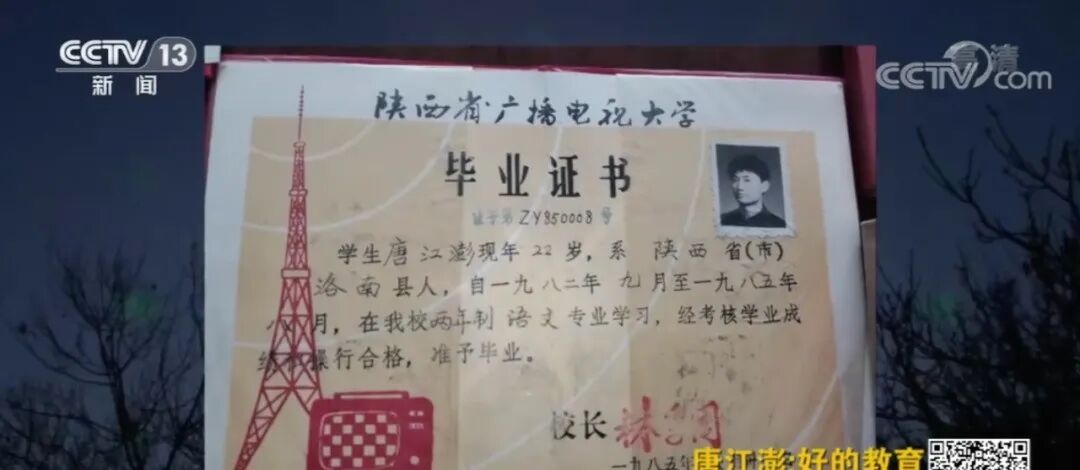 CCTV 13
新闻
高清
CCTV.com
陕西省广播电视大学
毕业证书
证字第ZY850008号
学生唐江澎现年22岁,系陕西省(市)
洛南县人,自一九八二年九月至一九八五年
八月,在我校两年制语文专业学习,经考核学业成
绩和操行合格,准予毕业。
校长
一九八五年
唐江澎:好的教育